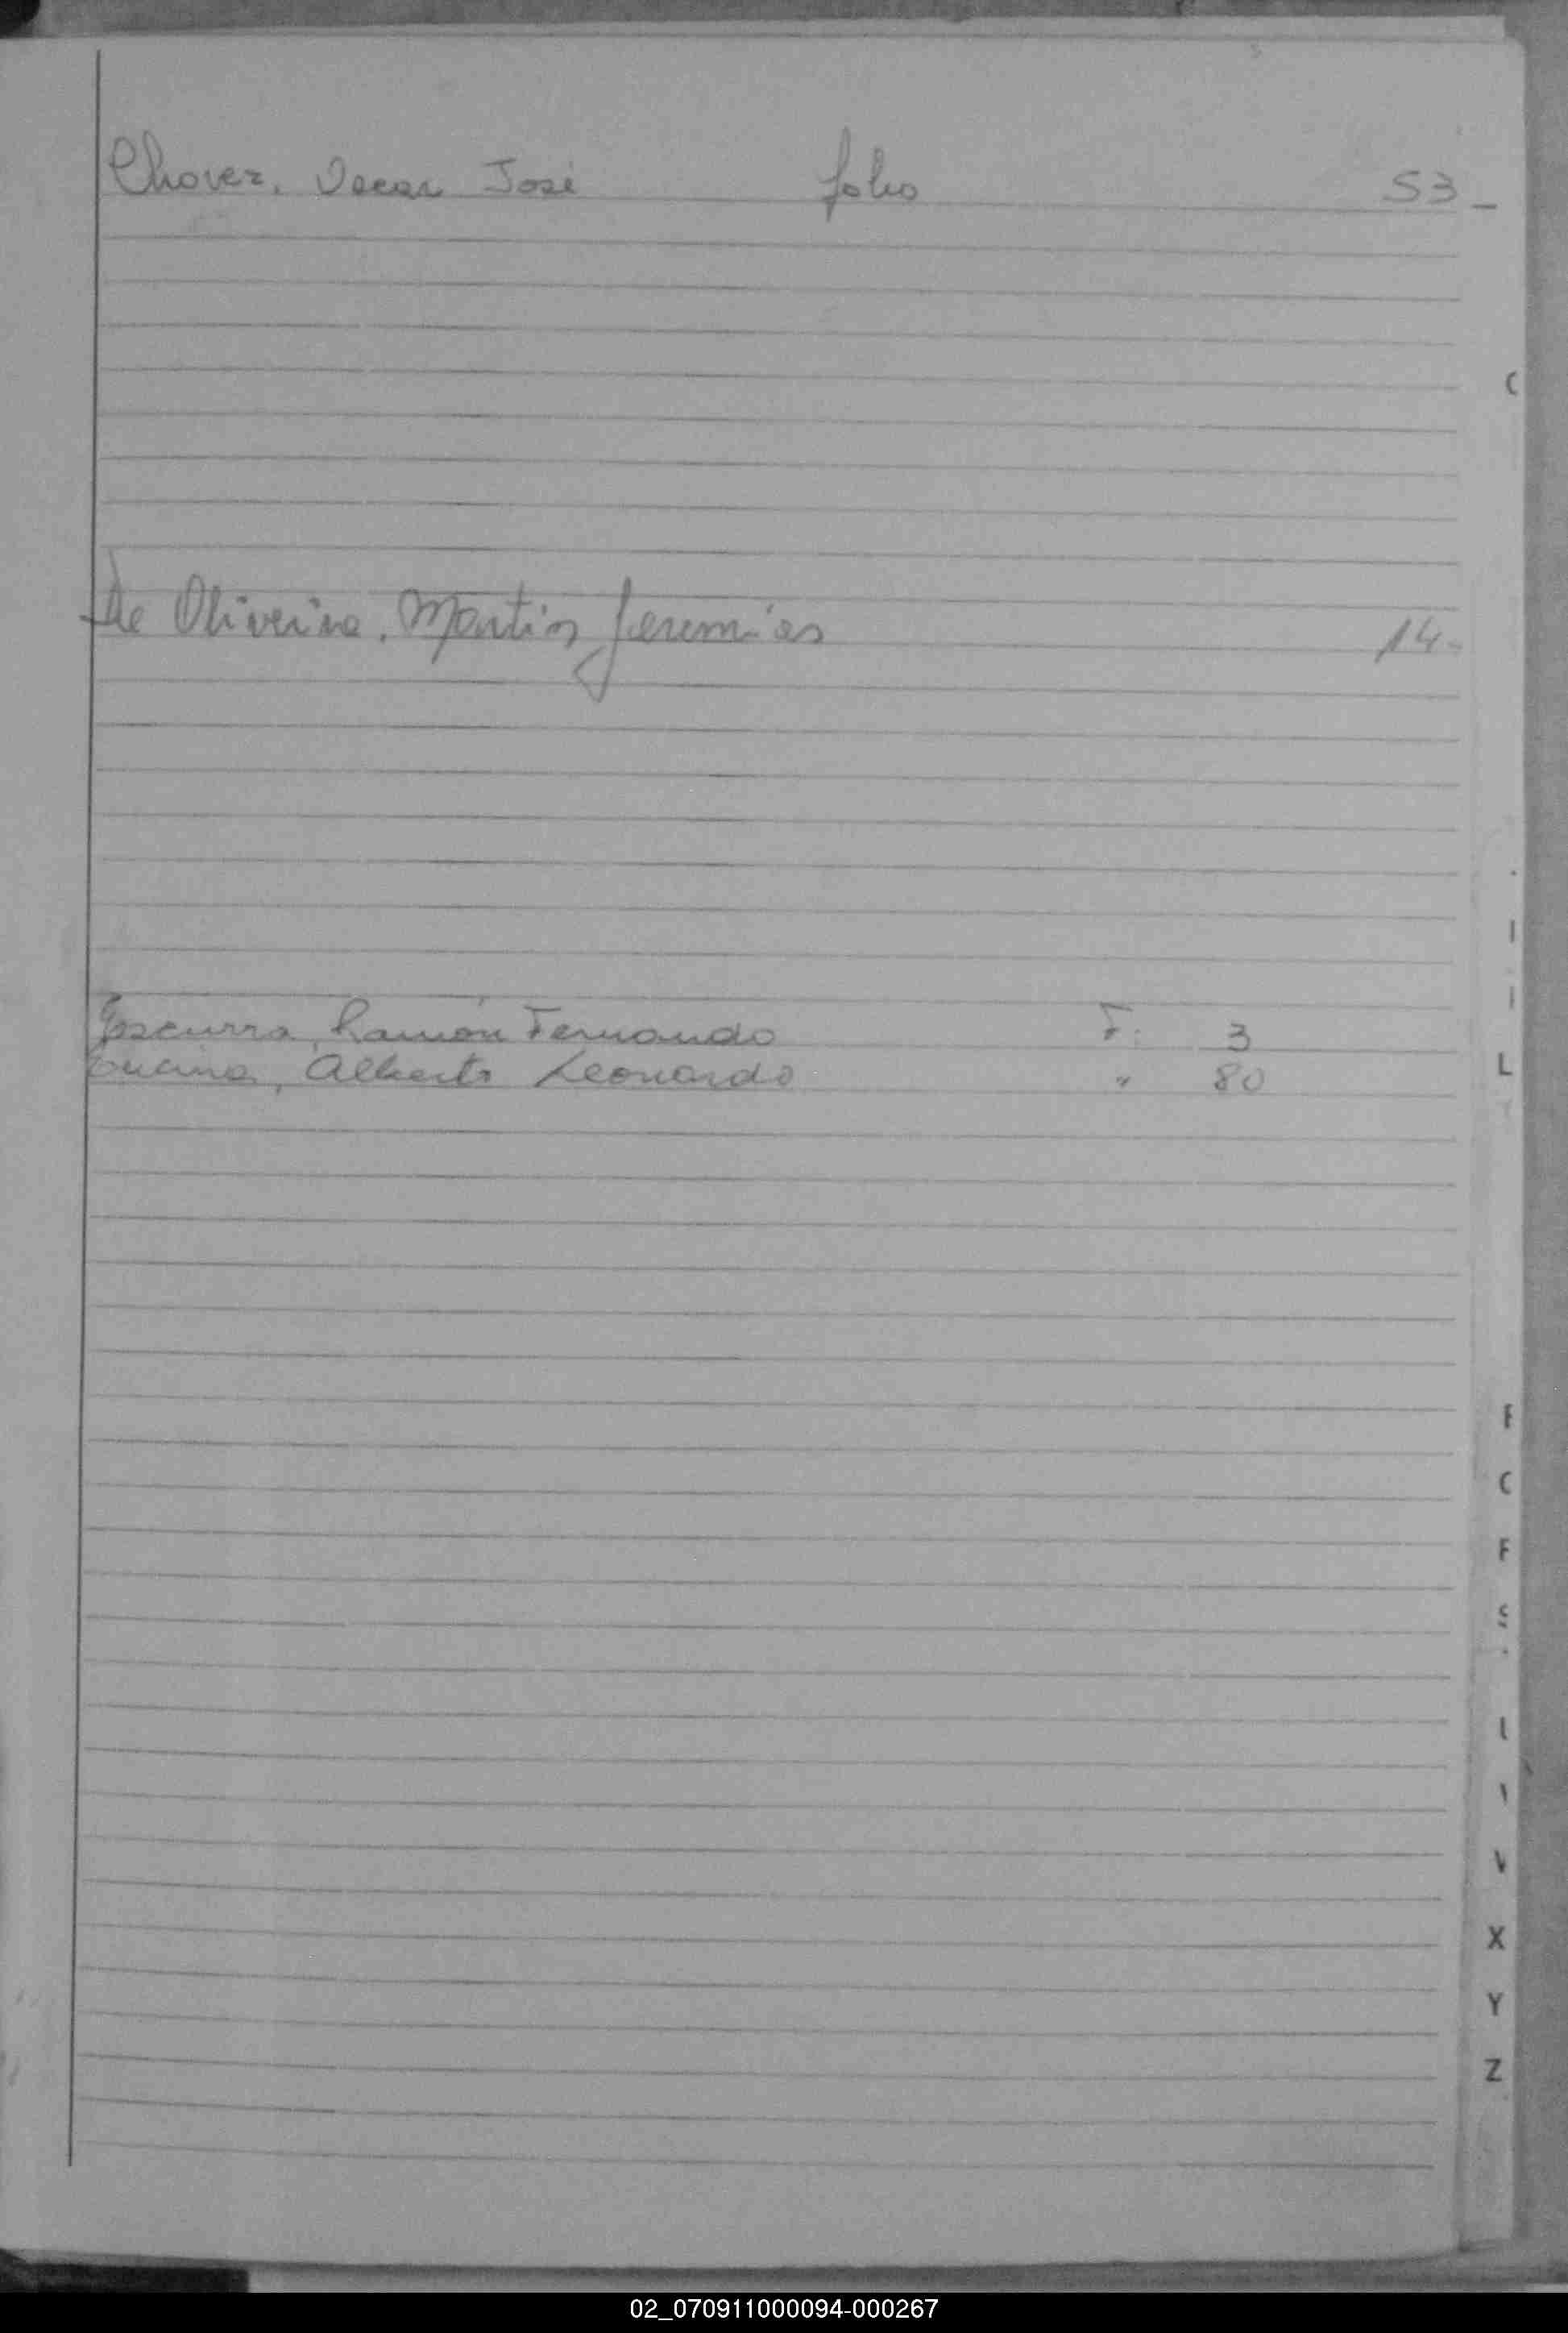 Chavez, Oscar José folio 53_
De Oliveira, Martin Jeremias 14-
Escurra, Ramón Fernando F: 3
Encina, Alberto Leonardo " 80
C
L
S
X
Y
Z
02_070911000094-000267